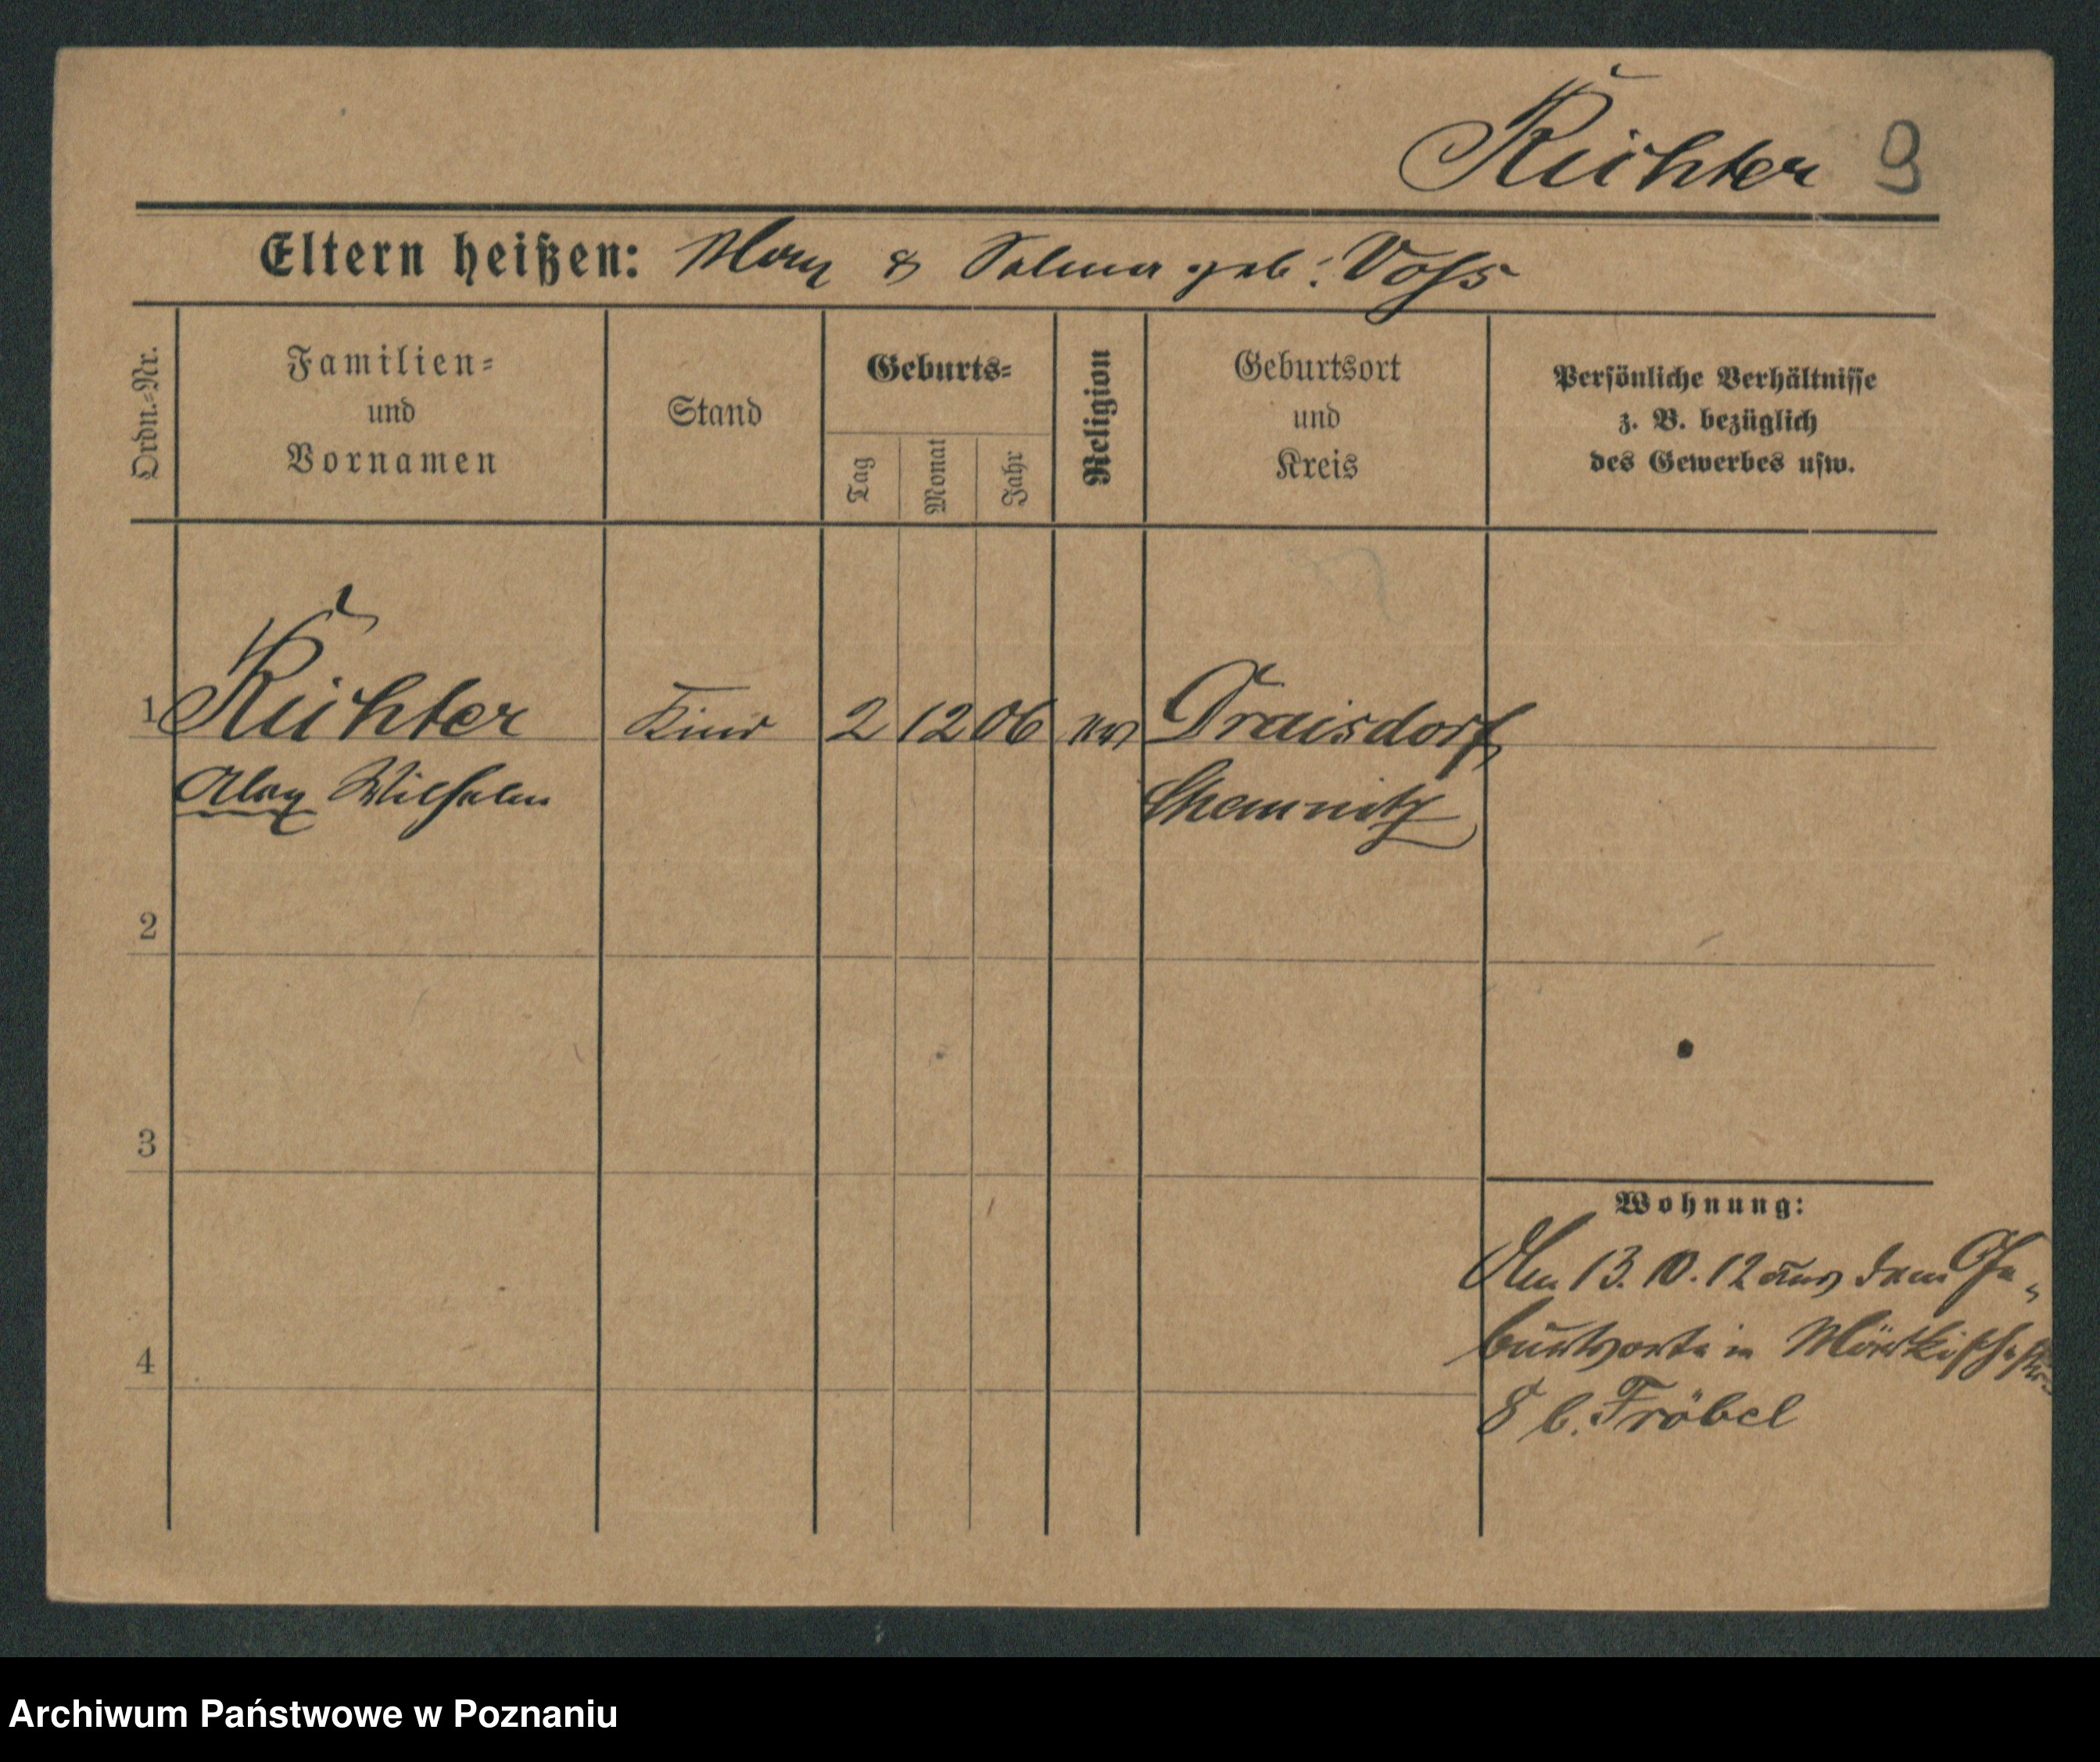 Richter 9
Eltern heißen: Max & Selma geb: Voss
Ordn.-Nr.
Familien- und Vornamen
Stand
Geburts-
Tag
Monat
Jahr
Religion
Geburtsort und Kreis
Persönliche Verhältnisse
z. B. bezüglich
des Gewerbes usw.
1 Richter Kind 2 12 06 ev Draisdorf
Alex Wilhelm Chemnitz
2
3
4
Wohnung:
Am 13. 10. 12 aus dem Ge-
burtsorte in Märkischestr.
8 b. Fröbel
Archiwum Państwowe w Poznaniu